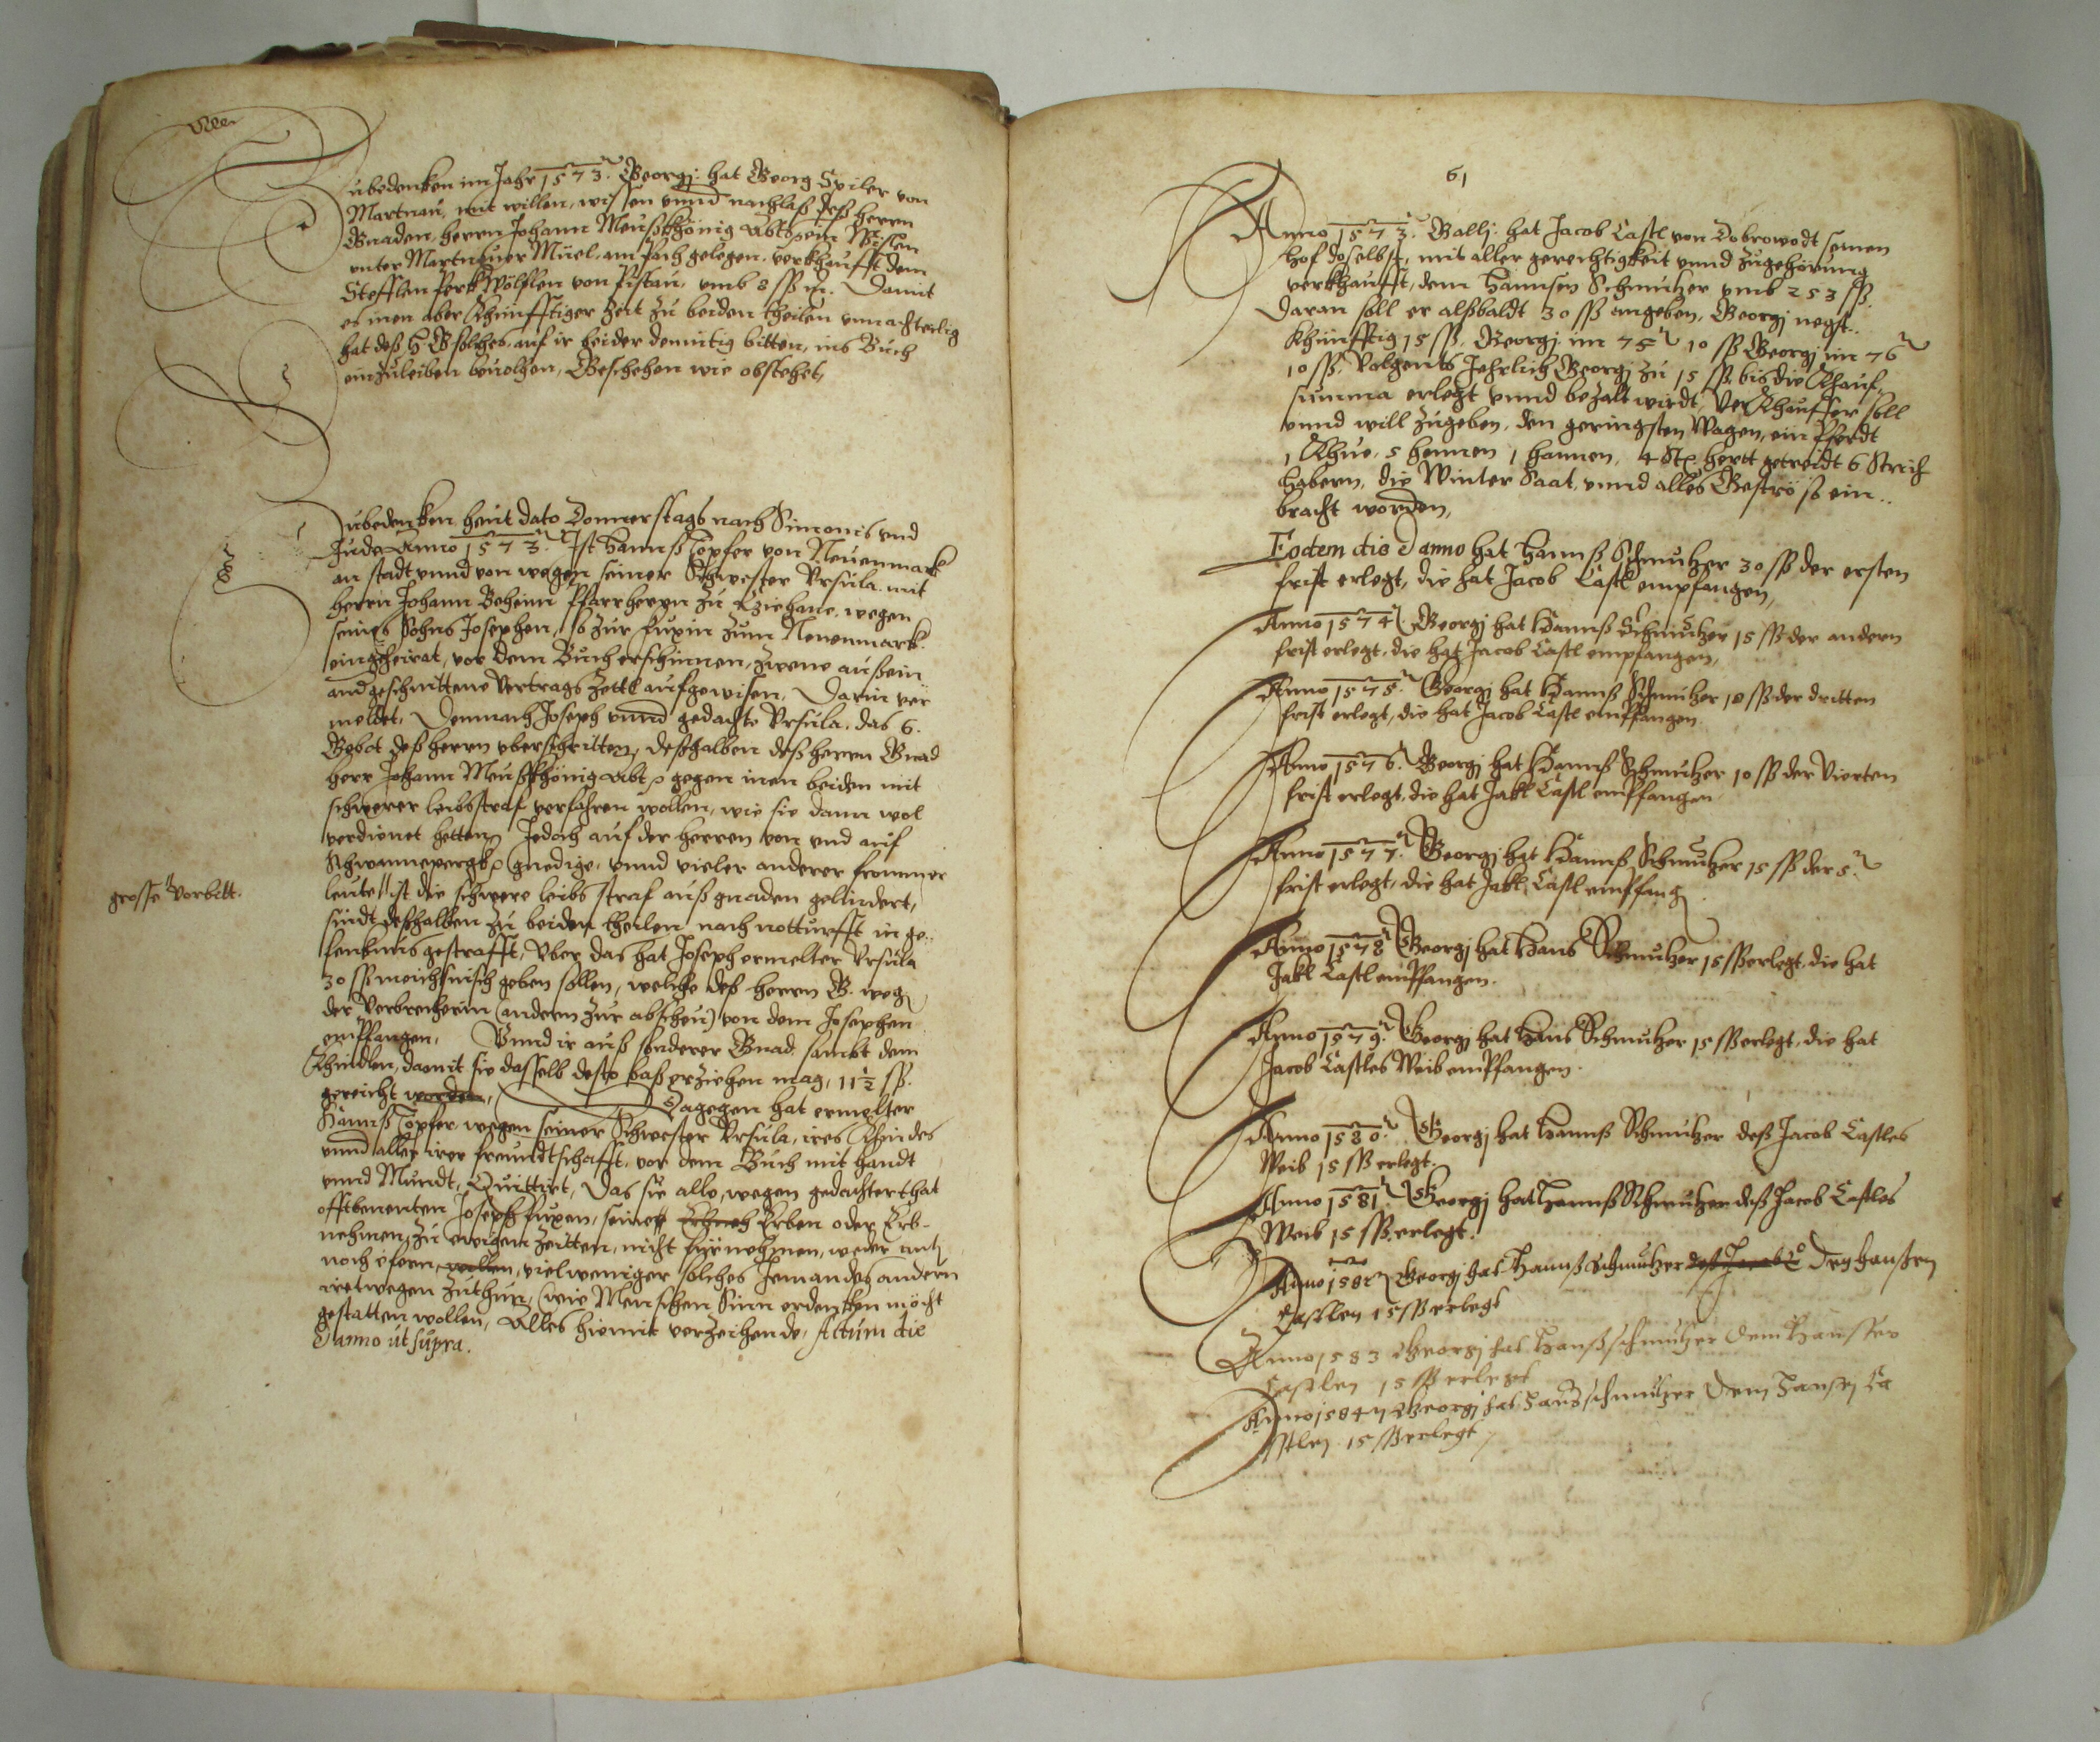 Zubedenken im Jahr 1573. Georgj: hat Georg Spiler von
Martnau, mit willen, wissen vnnd nachlaß deß herrn
Gnaden, herrn Johann Meußkhönig Abts, ein Wislen
vnter Martnauer Müel, am pach gelegen, verkhaufft dem
Stefflen Wölflen von Pistau, vmb 8 ss m. Damit
es inen aber Khünfftiger Zeit zu beiden theilen vnnachteilig
hat deß H G solches, auf ir beider demütig bitten, ins Buch
einzuleiben beuolhen, Geschehen wie obstehet,
Zubedenken, heut dato Donnerstags nach Simonis vnd
Juda Anno 1573. Ist Hannß Töpfer von Neuenmark
an stadt vnnd von wegen seiner Schwester Vrsula, mit
herrn Johann Beheim Pfarrherrn zu, wegen
seines Sohns Josephen, so zur Fuxin zum Neuenmark
eingeheirat, vor dem Buch erschinnen, zwene außein
andgeschnittene Vertrags Zettl aufgewisen, Darin ver
meldet, Demnach Joseph vnnd gedachte Vrsula, das 6.
Gebot deß herrn vberschritten, deßhalben deß herrn Gnad
herr Johann Meußkhönig Abt gegen inen beiden mit
schwerer leibsstraf verfahren wollen, wie sie dann wol
verdienet hetten, Jedoch auf der herren von vnd auf
Schwannepergks gnedige, vnnd vieler anderer frommer
grosse Vorbitt.
leute ist die schwere leibs straf auß gnaden gelindert,
sindt deßhalben zu beiden theilen nach notturfft in ge..
fenknus gestrafft, Vber das hat Joseph ermelter Vrsula
30 ss meichsnisch geben sollen, welche deß herrn G. weg
der Verbrecherin (andern zur abscheu) von dem Josephen
empfangen, Vnnd ir auß sonderer Gnad sambt dem
Khindlen, damit sie dasselb desto baß erziehen mag, 11½ ss.
gereicht worden, Dagegen hat ermelter
Hannß Töpfer wegen seiner Schwester Vrsula, ires Khindes
vnnd aller irer freundtschafft, vor dem Buch mit handt
vnnd Mundt, Quittirt, Das sie alle, wegen gedachter that
offtbenenten Joseph Fuxen, seine Erben oder Erb-
nehmen, zu ewigen zeitten, nicht fürnehmen, weder
noch efern wollen, vielweniger solches Jemandes andern
iretwegen zuthun, (wie Menschen Sinn erdenken möcht
gestatten wollen, Alles hiemit verzeihende, Actum die
et anno ut supra.
61
Anno 1573. Gallj: hat Jacob Castl von Dobrowodt seinen
hof doselbst, mit aller gerechtigkeit vnnd zugehörung
verkhaufft, dem Hannsen Schmutzer vmb 253 ss.
Daran soll er alßbaldt 30 ss angeben, Georgj negst..
Khünfftig 15 ss. Georgj im 75 10 ss Georgj im 76
10 ss. Volgents Jehrlich Georgj zu 15 ss. bis die Khauf,
summa erlegt vnnd bezalt wirdt, Verkhauffer soll
vnnd will zugeben, den geringsten Wagen, ein Pferdt
1 Khue, 5 hennen 1 hannen, 4 Str hertt getreidt 6 Strich
habern, die Winter Saat, vnnd alles Geströß ein..
bracht worden,
Eodem die et anno hat Hannß Schmutzer 30 ss der ersten
frist erlegt, die hat Jacob Castl empfangen,
Anno 1574 Georgj hat Hannß Schmutzer 15 ss der andern
frist erlegt, die hat Jacob Castl empfangen,
Anno 1575. Georgj hat Hannß Schmutzer 10 ss der dritten
frist erlegt, die hat Jacob Castl empfangen.
Anno 1576. Georgj hat Hannß Schmutzer 10 ss der Vierten
frist erlegt, die hat Jakl Castl empfangen
Anno 1577. Georgj hat Hannß Schmutzer 15 ss der 5.
frist erlegt, die hat Jakl Castl empfang
Anno 1578 Georgj hat Hans Schmutzer 15 ss erlegt, die hat
Jakl Castl empfangen.
Anno 1579. Georgj hat Hans Schmutzer 15 ss erlegt, die hat
Jacob Castles Weib empfangen.
Anno 1580. Georgj hat Hannß Schmutzer deß Jacob Castles
Weib 15 ss erlegt.
Anno 1581. Georgj hat Hannß Schmutzer deß Jacob Castles
Weib 15 ss. erlegt.
Anno 1582 Georgj hat Hannß Schmutzer deß Jacob C Den Hanßen
Castlen 15 ss erlegt
Anno 1583 Georgj hat Hanß schmutzer dem Hansser
Castlen 15 ss erlegt
Anno 1584 Georgj hat Hans schmutzer dem Hansen Ca
stlen 15 ss erlegt